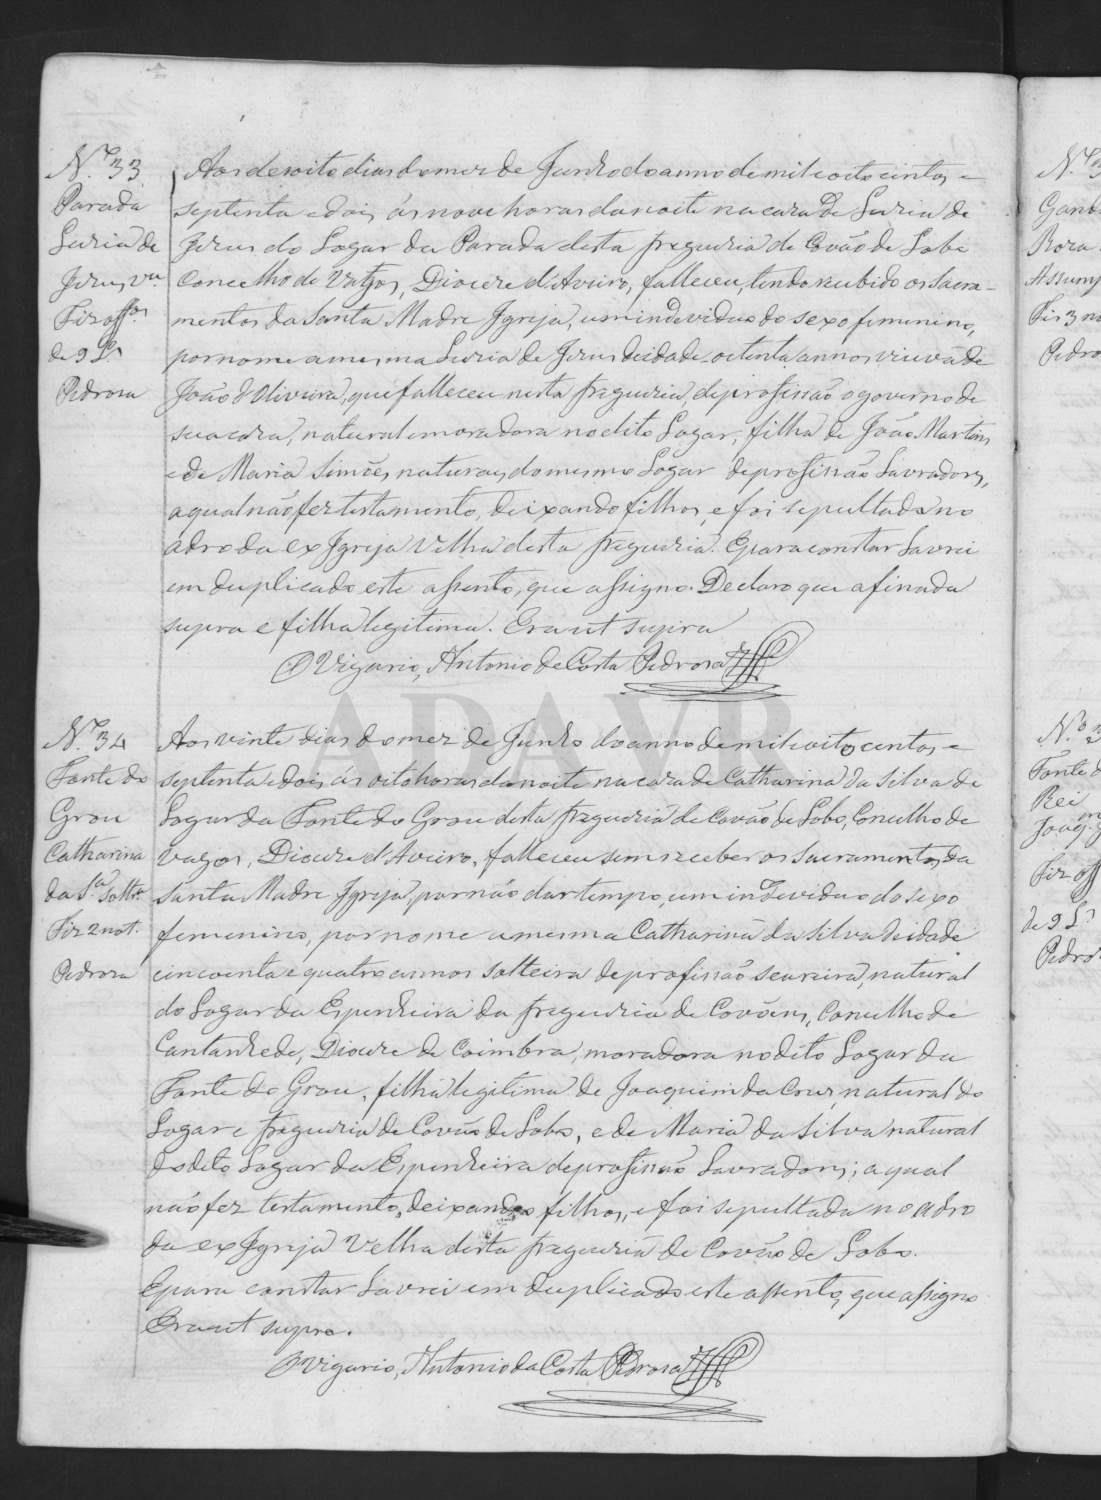 Nº 33
Parada
Luzia de
Jesus, vª
Fiz offos
de 9 Ls
Pedrosa
Aos desoito dias do mez de Junho do anno de mil e oito centos e
septenta e dois, ás nove horas da noite na caza de Luzia de
Jesus do Logar da Parada desta freguezia de Covão de Lobo
Concelho de Vagos, Diocese d'Aveiro, falleceu, tendo recebido os Sacra-
mentos da Santa Madre Igreja, um individuo do sexo femenino,
por nome a mesma Luzia de Jesus de idade oitenta annos viuva de
João d'Oliveira, que falleceu nesta freguezia, de profissão o governo de
sua caza, natural e moradora no dito Logar, filha de João Martins,
e de Maria Simões, naturaes do mesmo Logar de profissão Lavradores,
a qual não fez testamento, deixando filhos, e foi sepultada no
ádro da ex Igreja Velha desta freguezia. E para constar Lavrei
em duplicado este assento, que assigno. Declaro que a finada
supra e filha legitima. Era ut supra
O Vigario, Antonio da Costa Pedrosa
ADAVR
Nº 34
Fonte do
Grou
Catharina
da Sª solthª
Fiz 2 not.
Pedrosa
Aos vinte dias do mez de Junho do anno de mil e oito centos e
septenta e dois, ás oito horas da noite na caza de Catharina da Silva do
Logar da Fonte do Grou desta freguezia de Covão de Lobo, Concelho de
Vagos, Diocese d'Aveiro, falleceu sem receber os Sacramentos da
Santa Madre Igreja, por não dar tempo, um individuo do sexo
femenino, por nome a mesma Catharina da Silva de idade
cincoenta e quatro annos solteira de profissão seareira, natural
do Logar da Espenheira da freguezia de Covões, Concelho de
Cantanhede, Diocese de Coimbra, moradora no dito Logar da
Fonte do Grou, filha legitima de Joaquim da Cruz, natural do
Logar e freguezia de Covão de Lobo, e de Maria da Silva natural
do dito Logar da Espenheira de profissão Lavradores; a qual
não fez testamento, deixando filhos, e foi sepultada no adro
da ex Igreja Velha desta freguezia de Covão de Lobo.
E para constar Lavrei em duplicado este assento, que assigno
Era ut supra.
O Vigario, Antonio da Costa Pedrosa
Rei
Fiz off
de 9 Ls